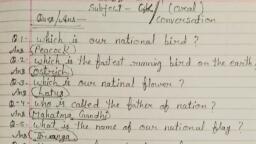 Subject - GK/ (oral)
Ques/Ans- conversation
Q.1- which is our national bird ?
Ans (Peacock)
Q-2- which is the fastest running bird on the earth
Ans (Ostrich)
Q-3- which is our natinal flower ?
Ans (Lotus)
Q-4- who is called the father of nation ?
Ans (Mahatma Gandhi)
Q-5- what is the name of our national flag ?
Ans (Tiranga)